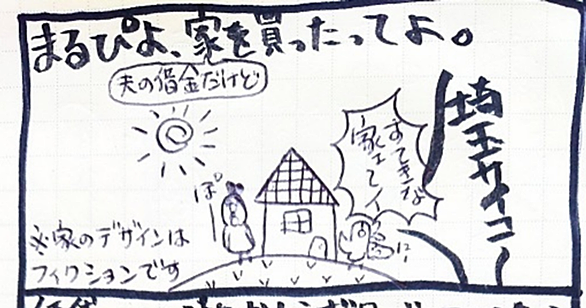 まるぴよ、家を買ったってよ。
夫の借金だけど
埼玉サイコー
すてきな
家エてイ
ぽ
に
※家のデザインは
フィクションです